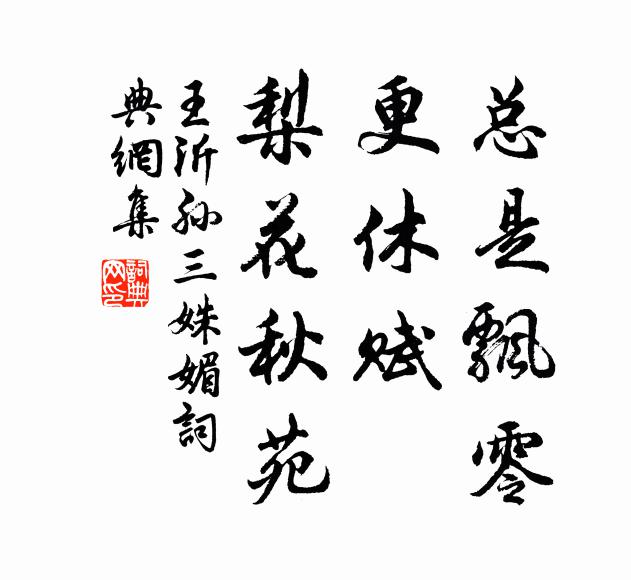 总是飄零
更休賦
梨花秋苑
王沂孙三姝媚詞
典網集
詞典
网印